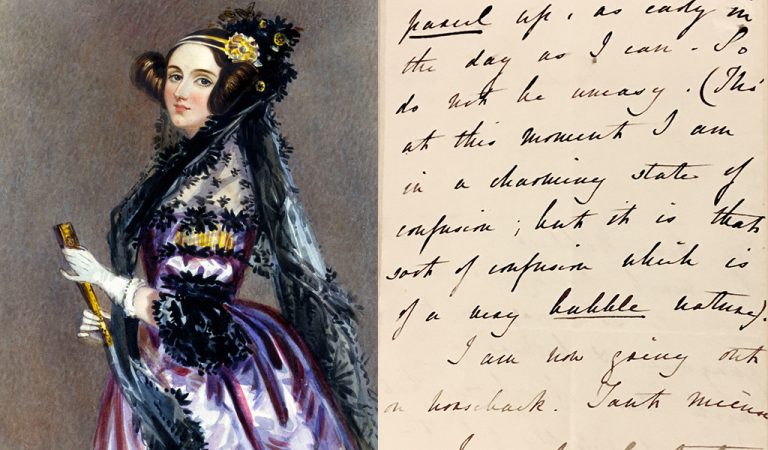 parcel up, as early in
the day as I can - So
do not be uneasy. (Tho'
at this moment I am
in a charming state of
confusion; but it is that
sort of confusion which is
of a very bubble nature).
I am now going out
on horseback. Tant mieux